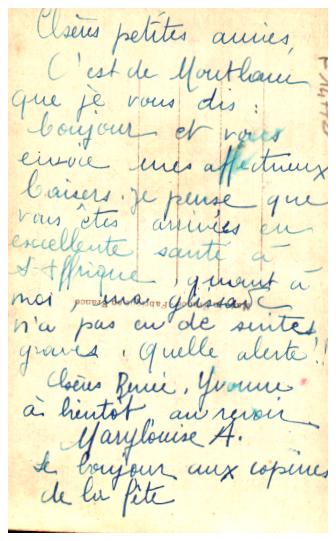 Chères petites amies,
C'est de Montlaur
que je vous dis :
bonjour et vous
envoie mes affectueux
baisers. Je pense que
vous êtes arrivées en
excellente santé à
St-Affrique, quant à
moi, ma glissade
n'a pas eu de suites
graves. Quelle alerte !!
Chères Renée, Yvonne
à bientôt, au revoir
Marylouise A.
le bonjour aux copines
de la fête